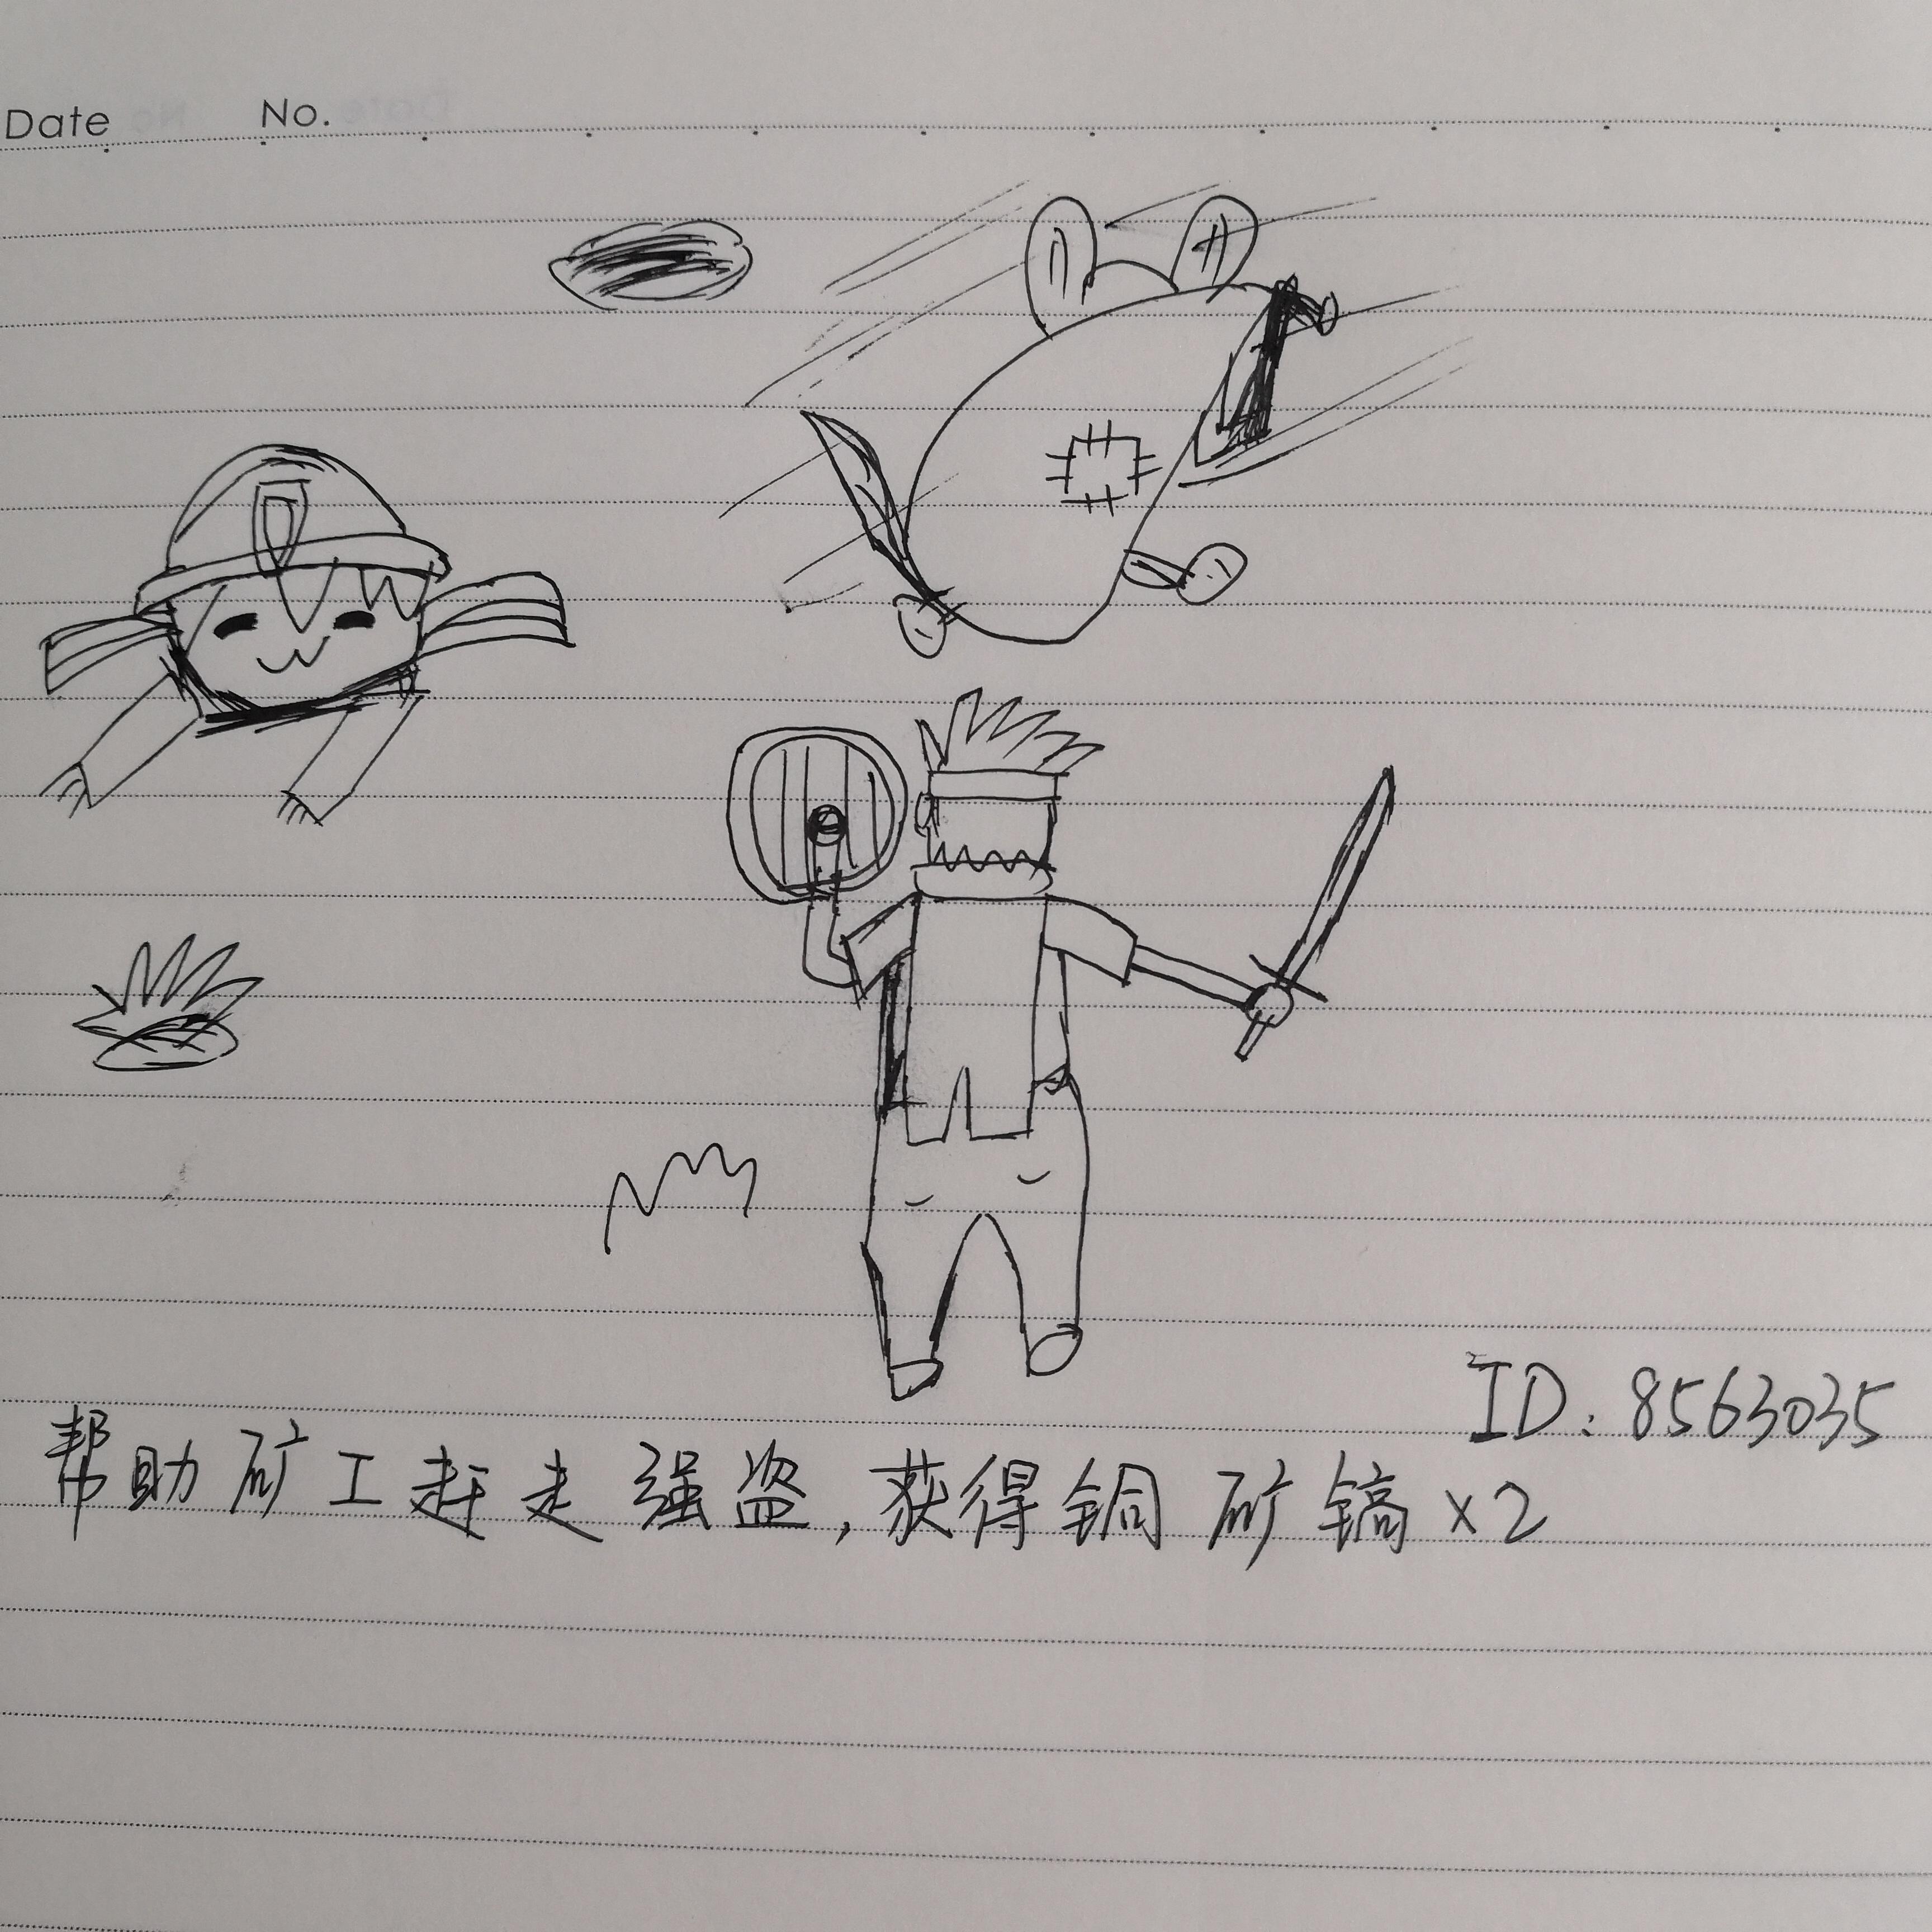 Date No.
ID: 8563035
帮助矿工赶走强盗,获得铜矿镐×2